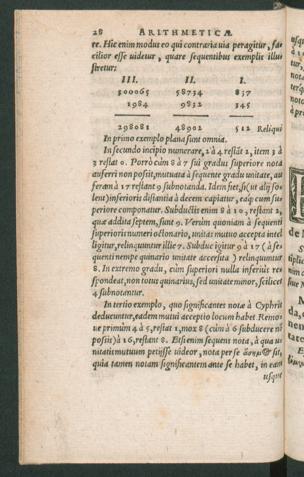 28 ARITHMETICÆ
re. Hic enim modus eo qui contraria via peragitur, fa-
cilior esse uidetur, quare sequentibus exemplis illus
stretur:
III. II. I.
300065 58734 857
1984 9832 345
298081 48902 512 Reliqui
In primo exemplo plana sunt omnia.
In secundo incipio numerare, 2 à 4 restat 2, item 3 à
3 restat 0. Porrò cùm 8 à 7 sui gradu superiore nota
auferri non possit, mutuata à sequente gradu unitate, au
feram à 17 restant 9 subnotanda. Idem fiet, si (ut alij so-
lent) inferioris distantia à decem capiatur, eaq; cum su-
periore componatur. Subductis enim 8 à 10, restant 2,
quæ addita septem, sunt 9. Verùm quoniam à sequenti
superioris numeri octonario, unitas mutuo accepta intel
ligitur, relinquuntur illic 7. Subduc igitur 9 à 17 (à se-
quenti nempe quinario unitate accersita) relinquuntur
8. In extremo gradu, cùm superiori nulla inferiùs re-
spondeat, non totus quinarius, sed unitate minor, scilicet
4 subnotantur.
In tertio exemplo, quo significantes notæ à Cyphris
deducuntur, eadem mutui acceptio locum habet. Remo-
ue primùm 4 à 5, restat 1, mox 8 (cùm à 6 subducere nõ
possis) à 16, restant 8. Etsi enim sequens nota, à qua u-
nitatis mutuum petijsse uideor, nota per se sit,
quia tamen notam significantem ante se habet, in eam
usque